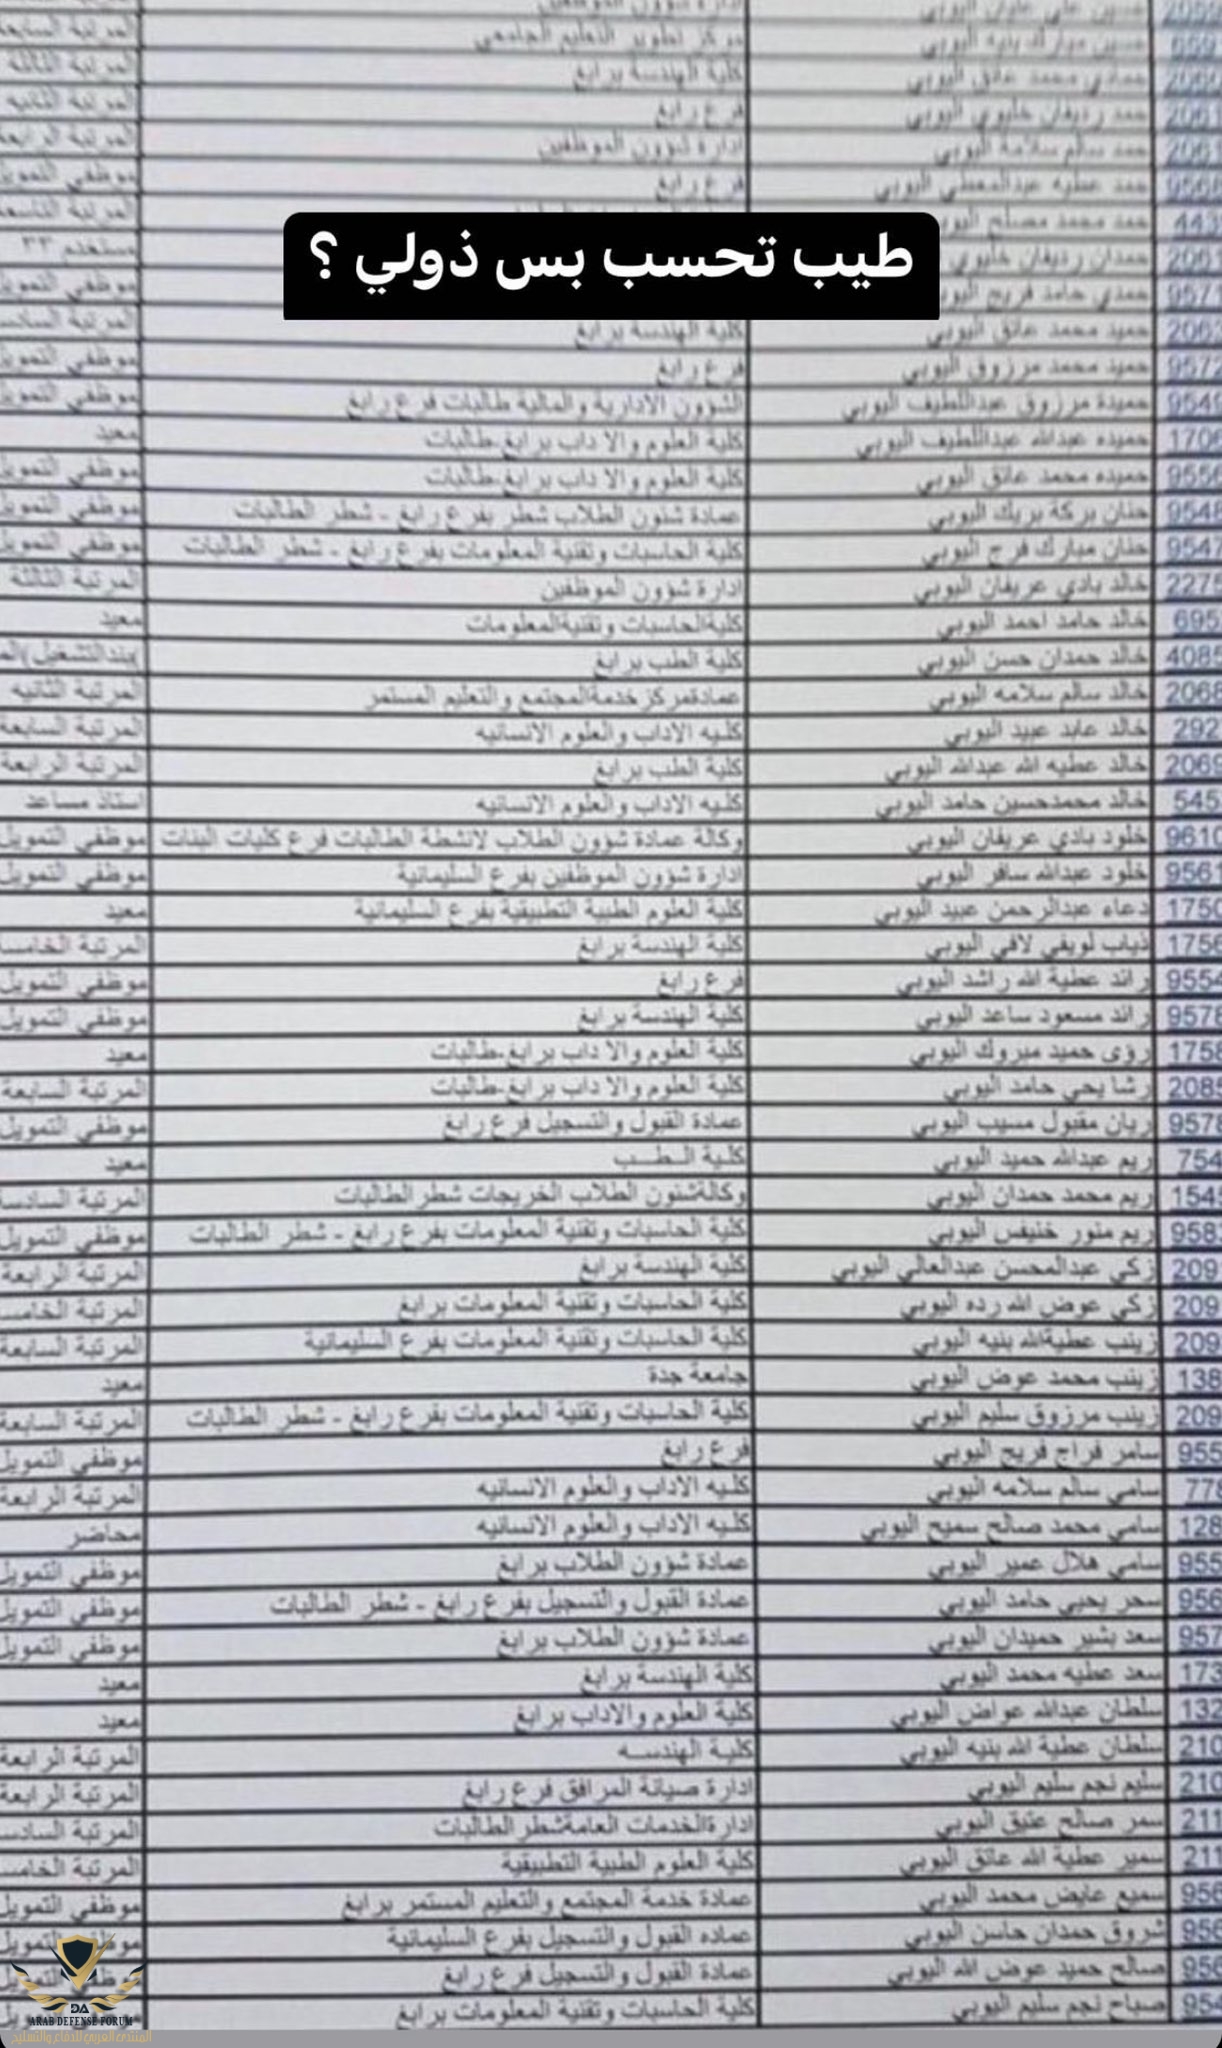 طيب تحسب بس ذولي ؟
مركز تطوير التعليم الجامعي
كلية الهندسة برابغ المرتبة الثالثة
فرع رابغ المرتبة الثانيه
2061 حمد سالم سلامة اليوبي ادارة شؤون الموظفين المرتبة الرابعة
9568 حمد عطيه عبدالمعطي اليوبي فرع رابغ موظفي التمويل
443 حمد محمد مصلح
2061 حمدان رديفان خليوي مستخدم ٣٣
9571 حمدي حامد فريج موظفي التمويل
206 حميد محمد عاتق اليوبي كلية الهندسة برابغ
9572 حميد محمد مرزوق اليوبي فرع رابغ موظفي التمويل
9549 حميدة مرزوق عبداللطيف اليوبي الشؤون الادارية والمالية طالبات فرع رابغ موظفي التمويل
1706 حميده عبدالله عبداللطيف اليوبي كلية العلوم والا داب برابغ-طالبات معيد
9556 حميده محمد عاتق اليوبي كلية العلوم والا داب برابغ-طالبات موظفي التمويل
9548 حنان بركة بريك اليوبي عمادة شئون الطلاب شطر بفرع رابغ - شطر الطالبات موظفي التمويل
9547 حنان مبارك فرج اليوبي كلية الحاسبات وتقنية المعلومات بفرع رابغ - شطر الطالبات موظفي التمويل
2275 خالد بادي عريفان اليوبي ادارة شؤون الموظفين المرتبة الثالثة
695 خالد حامد احمد اليوبي كليةالحاسبات وتقنيةالمعلومات معيد
4085 خالد حمدان حسن اليوبي كلية الطب برابغ )بندالتشغيل(
2068 خالد سالم سلامه اليوبي عمادةمركز خدمةالمجتمع والتعليم المستمر المرتبة الثانيه
292 خالد عابد عبيد اليوبي كليه الاداب والعلوم الانسانيه المرتبة السابعة
2069 خالد عطيه الله عبدالله اليوبي كلية الطب برابغ المرتبة الرابعة
545 خالد محمدحسين حامد اليوبي كليه الاداب والعلوم الانسانيه استاذ مساعد
9610 خلود بادي عريفان اليوبي وكالة عمادة شؤون الطلاب لانشطة الطالبات فرع كليات البنات موظفي التمويل
9561 خلود عبدالله سافر اليوبي ادارة شؤون الموظفين بفرع السليمانية موظفي التمويل
1750 دعاء عبدالرحمن عبيد اليوبي كلية العلوم الطبية التطبيقية بفرع السليمانية معيد
1756 ذياب لويفي لافي اليوبي كلية الهندسة برابغ المرتبة الخامسة
9554 رائد عطية الله راشد اليوبي فرع رابغ موظفي التمويل
9578 رائد مسعود ساعد اليوبي كلية الهندسة برابغ موظفي التمويل
1758 رؤى حميد مبروك اليوبي كلية العلوم والا داب برابغ-طالبات معيد
2085 رشا يحي حامد اليوبي كلية العلوم والا داب برابغ-طالبات المرتبة السابعة
9578 ريان مقبول مسيب اليوبي عمادة القبول والتسجيل فرع رابغ موظفي التمويل
754 ريم عبدالله حميد اليوبي كلية الطب معيد
154 ريم محمد حمدان اليوبي وكالةشئون الطلاب الخريجات شطر الطالبات المرتبة السادسة
958 ريم منور خنيفس اليوبي كلية الحاسبات وتقنية المعلومات بفرع رابغ - شطر الطالبات موظفي التمويل
209 زكي عبدالمحسن عبدالعالي اليوبي كلية الهندسة برابغ المرتبة الرابعة
209 زكي عوض الله رده اليوبي كلية الحاسبات وتقنية المعلومات برابغ المرتبة الخامسة
209 زينب عطيةالله بنيه اليوبي كلية الحاسبات وتقنية المعلومات بفرع السليمانية المرتبة السابعة
138 زينب محمد عوض اليوبي جامعة جدة معيد
209 زينب مرزوق سليم اليوبي كلية الحاسبات وتقنية المعلومات بفرع رابغ - شطر الطالبات المرتبة السابعة
955 سامر فراج فريج اليوبي فرع رابغ موظفي التمويل
778 سامي سالم سلامه اليوبي كليه الاداب والعلوم الانسانيه المرتبة الرابعة
128 سامي محمد صالح سميح اليوبي كليه الاداب والعلوم الانسانيه محاضر
955 سامي هلال عمير اليوبي عمادة شؤون الطلاب برابغ موظفي التمويل
956 سحر يحيي حامد اليوبي عمادة القبول والتسجيل بفرع رابغ - شطر الطالبات موظفي التمويل
957 سعد بشير حميدان اليوبي عمادة شؤون الطلاب برابغ موظفي التمويل
173 سعد عطيه محمد اليوبي كلية الهندسة برابغ معيد
132 سلطان عبدالله عواض اليوبي كلية العلوم والاداب برابغ معيد
210 سلطان عطية الله بنيه اليوبي كلية الهندسه المرتبة الرابعة
210 سليم نجم سليم اليوبي ادارة صيانة المرافق فرع رابغ المرتبة الرابعة
211 سمر صالح عتيق اليوبي ادارةالخدمات العامةشطر الطالبات المرتبة السادسة
211 سمير عطية الله عاتق اليوبي كلية العلوم الطبية التطبيقية المرتبة الخامسة
956 سميع عايض محمد اليوبي عمادة خدمة المجتمع والتعليم المستمر برابغ موظفي التمويل
956 شروق حمدان حاسن اليوبي عماده القبول والتسجيل بفرع السليمانية التمويل
956 صالح حميد عوض الله اليوبي عمادة القبول والتسجيل فرع رابغ
954 صباح نجم سليم اليوبي كلية الحاسبات وتقنية المعلومات برابغ
DA
ARAB DEFENSE FORUM
المنتدى العربي للدفاع والتسليح